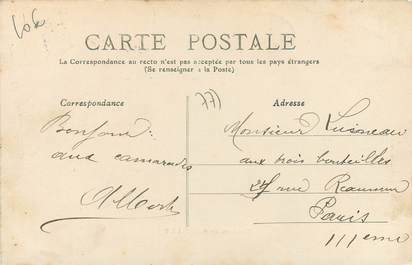 CARTE POSTALE
La Correspondance au recto n'est pas acceptée par tous les pays étrangers
(Se renseigner à la Poste)
77)
Correspondance
Bonjour
aux camarades
Albert
Adresse
Monsieur Lusineau
aux trois bouteilles
rue Reaumur
Paris
III eme